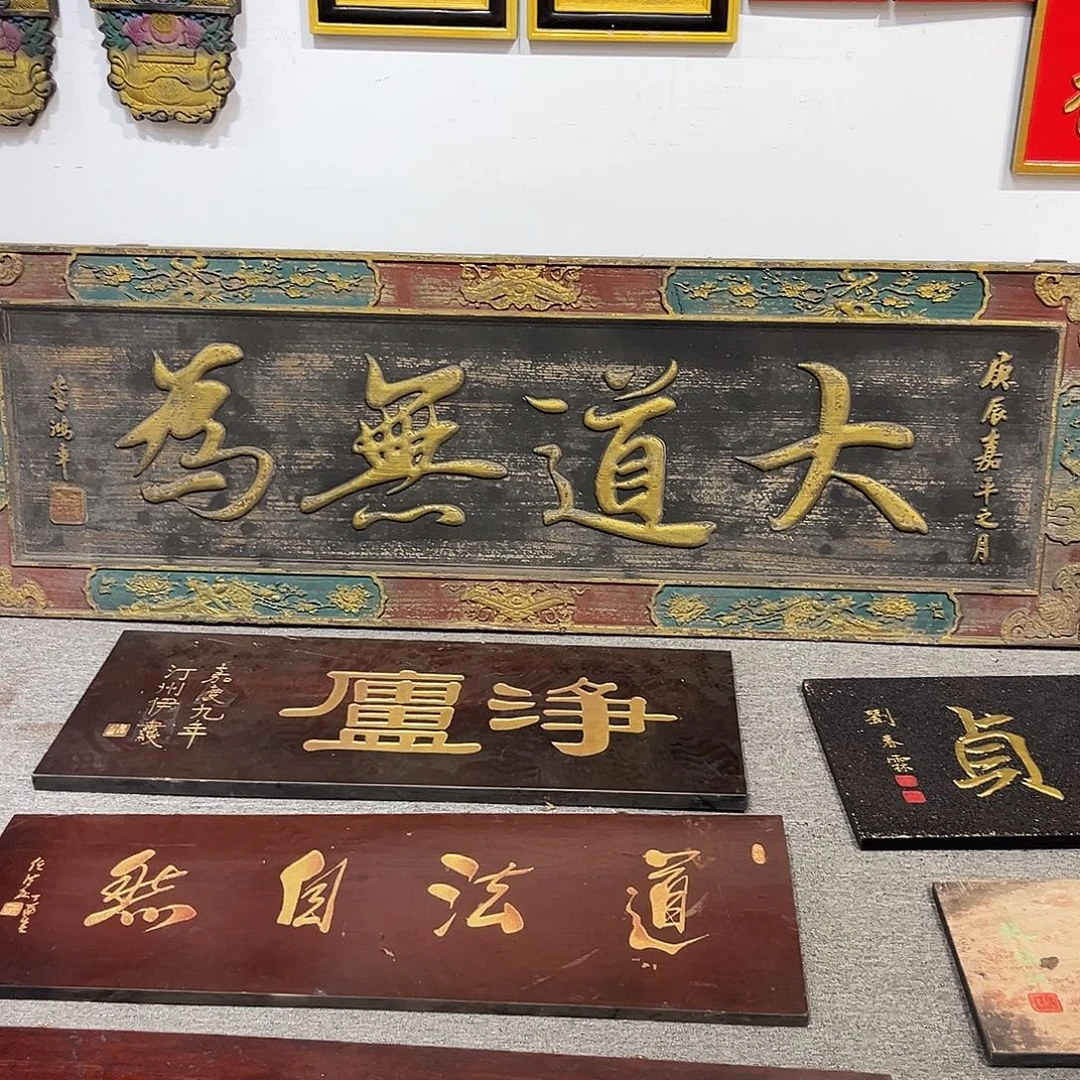 庚辰嘉平之月
大道無為
李鴻章
淨廬
嘉慶九年
汀州伊秉綬
貞
劉春霖
道法自然